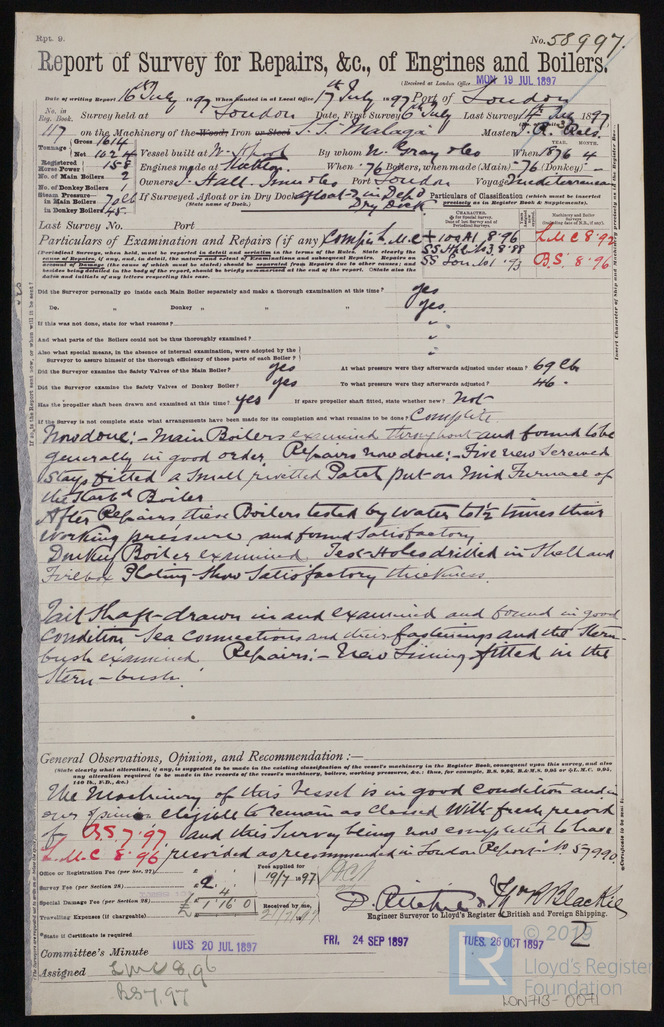 Rpt. 9.
No. 58997.
Report of Survey for Repairs, &c., of Engines and Boilers.
(Received at London Office MON 19 JUL 1897
Date of writing Report 16th July 1897 When handed in at Local Office 17th July 1897 Port of London
No. in Reg. Book. Survey held at London Date, First Survey 6th July Last Survey 14th July 1897
117 on the Machinery of the Wood, Iron or Steel S.S. Malaga Master
Tonnage Gross 1614 Net 1024 Vessel built at By whom W. Gray & Co When 1876 4
Registered Horse Power 158 Engines made at When 76 Boilers, when made (Main) 76 (Donkey) -
No. of Main Boilers 2 Owners J. Hall Junr & Co Port London Voyage Mediterranean
No. of Donkey Boilers 1
Steam Pressure in Main Boilers 70 lb If Surveyed Afloat or in Dry Dock afloat & in Dry Dock
(State name of Dock.)
in Donkey Boilers 45.
Particulars of Classification (which must be inserted precisely as in Register Book & Supplements).
Last Survey No. Port
Particulars of Examination and Repairs (if any) Complete L.M.C
+ 100 A1 8.96
8.88
SS Lon No 1 '93
L.M.C 8.92
B.S. 8.96
Did the Surveyor personally go inside each Main Boiler separately and make a thorough examination at this time? yes
Do. " Donkey " " " " yes.
If this was not done, state for what reasons? "
And what parts of the Boilers could not be thus thoroughly examined? "
Also what special means, in the absence of internal examination, were adopted by the Surveyor to assure himself of the thorough efficiency of those parts of each Boiler? "
Did the Surveyor examine the Safety Valves of the Main Boiler? yes At what pressure were they afterwards adjusted under steam? 69 lb
Did the Surveyor examine the Safety Valves of Donkey Boiler? yes To what pressure were they afterwards adjusted? 46.
Has the propeller shaft been drawn and examined at this time? yes If spare propeller shaft fitted, state whether new? Not
If the Survey is not complete state what arrangements have been made for its completion and what remains to be done? Complete
Now done:- Main Boilers examined throughout and found to be
generally in good order Repairs now done:- Five new screwed
Stays fitted a Small rivetted Patch put on Mid Furnace of
the Starbd Boiler
After Repairs these Boilers tested by water to 1½ times their
working pressure and found Satisfactory
Donkey Boiler examined, Test-Holes drilled in Shell and
Firebox Plating Show Satisfactory thickness.
Tail Shaft-drawn in and examined and found in good
Condition Sea Connections and their fastenings and the Stern-
bush examined Repairs:- New Lining fitted in the
Stern-bush.
General Observations, Opinion, and Recommendation:-
(State clearly what alteration, if any, is suggested to be made in the existing classification of the vessel's machinery in the Register Book, consequent upon this survey, and also
any alteration required to be made in the records of the vessel's machinery, boilers, working pressures, &c.: thus, for example, B.S. 9.95, B.&M.S. 9.95 or L.M.C. 9.95, 140 lb., F.D., &c.)
The Machinery of this Vessel is in good Condition and in
our opinion eligible to remain as Classed With fresh record
of B.S 7.97, and this Survey being now completed to have
L.M.C 8.96 recorded as recommended in London Report No 57990
Office or Registration Fee (per Sec. 27)
Survey Fee (per Section 28) 2
Special Damage Fee (per Section 28) £ 1 16 0
Travelling Expenses (if chargeable)
Fees applied for 19/7/1897
Received by me,
D. Ritchie & Wm R Blackie
Engineer Surveyor to Lloyd's Register of British and Foreign Shipping.
State if Certificate is required
Committee's Minute TUES 20 JUL 1897 FRI, 24 SEP 1897 TUES, 26 OCT 1897 2
Assigned LMC 8,96
BS 7,97
LR
© 2019
Lloyd's Register
Foundation
LON713-0071